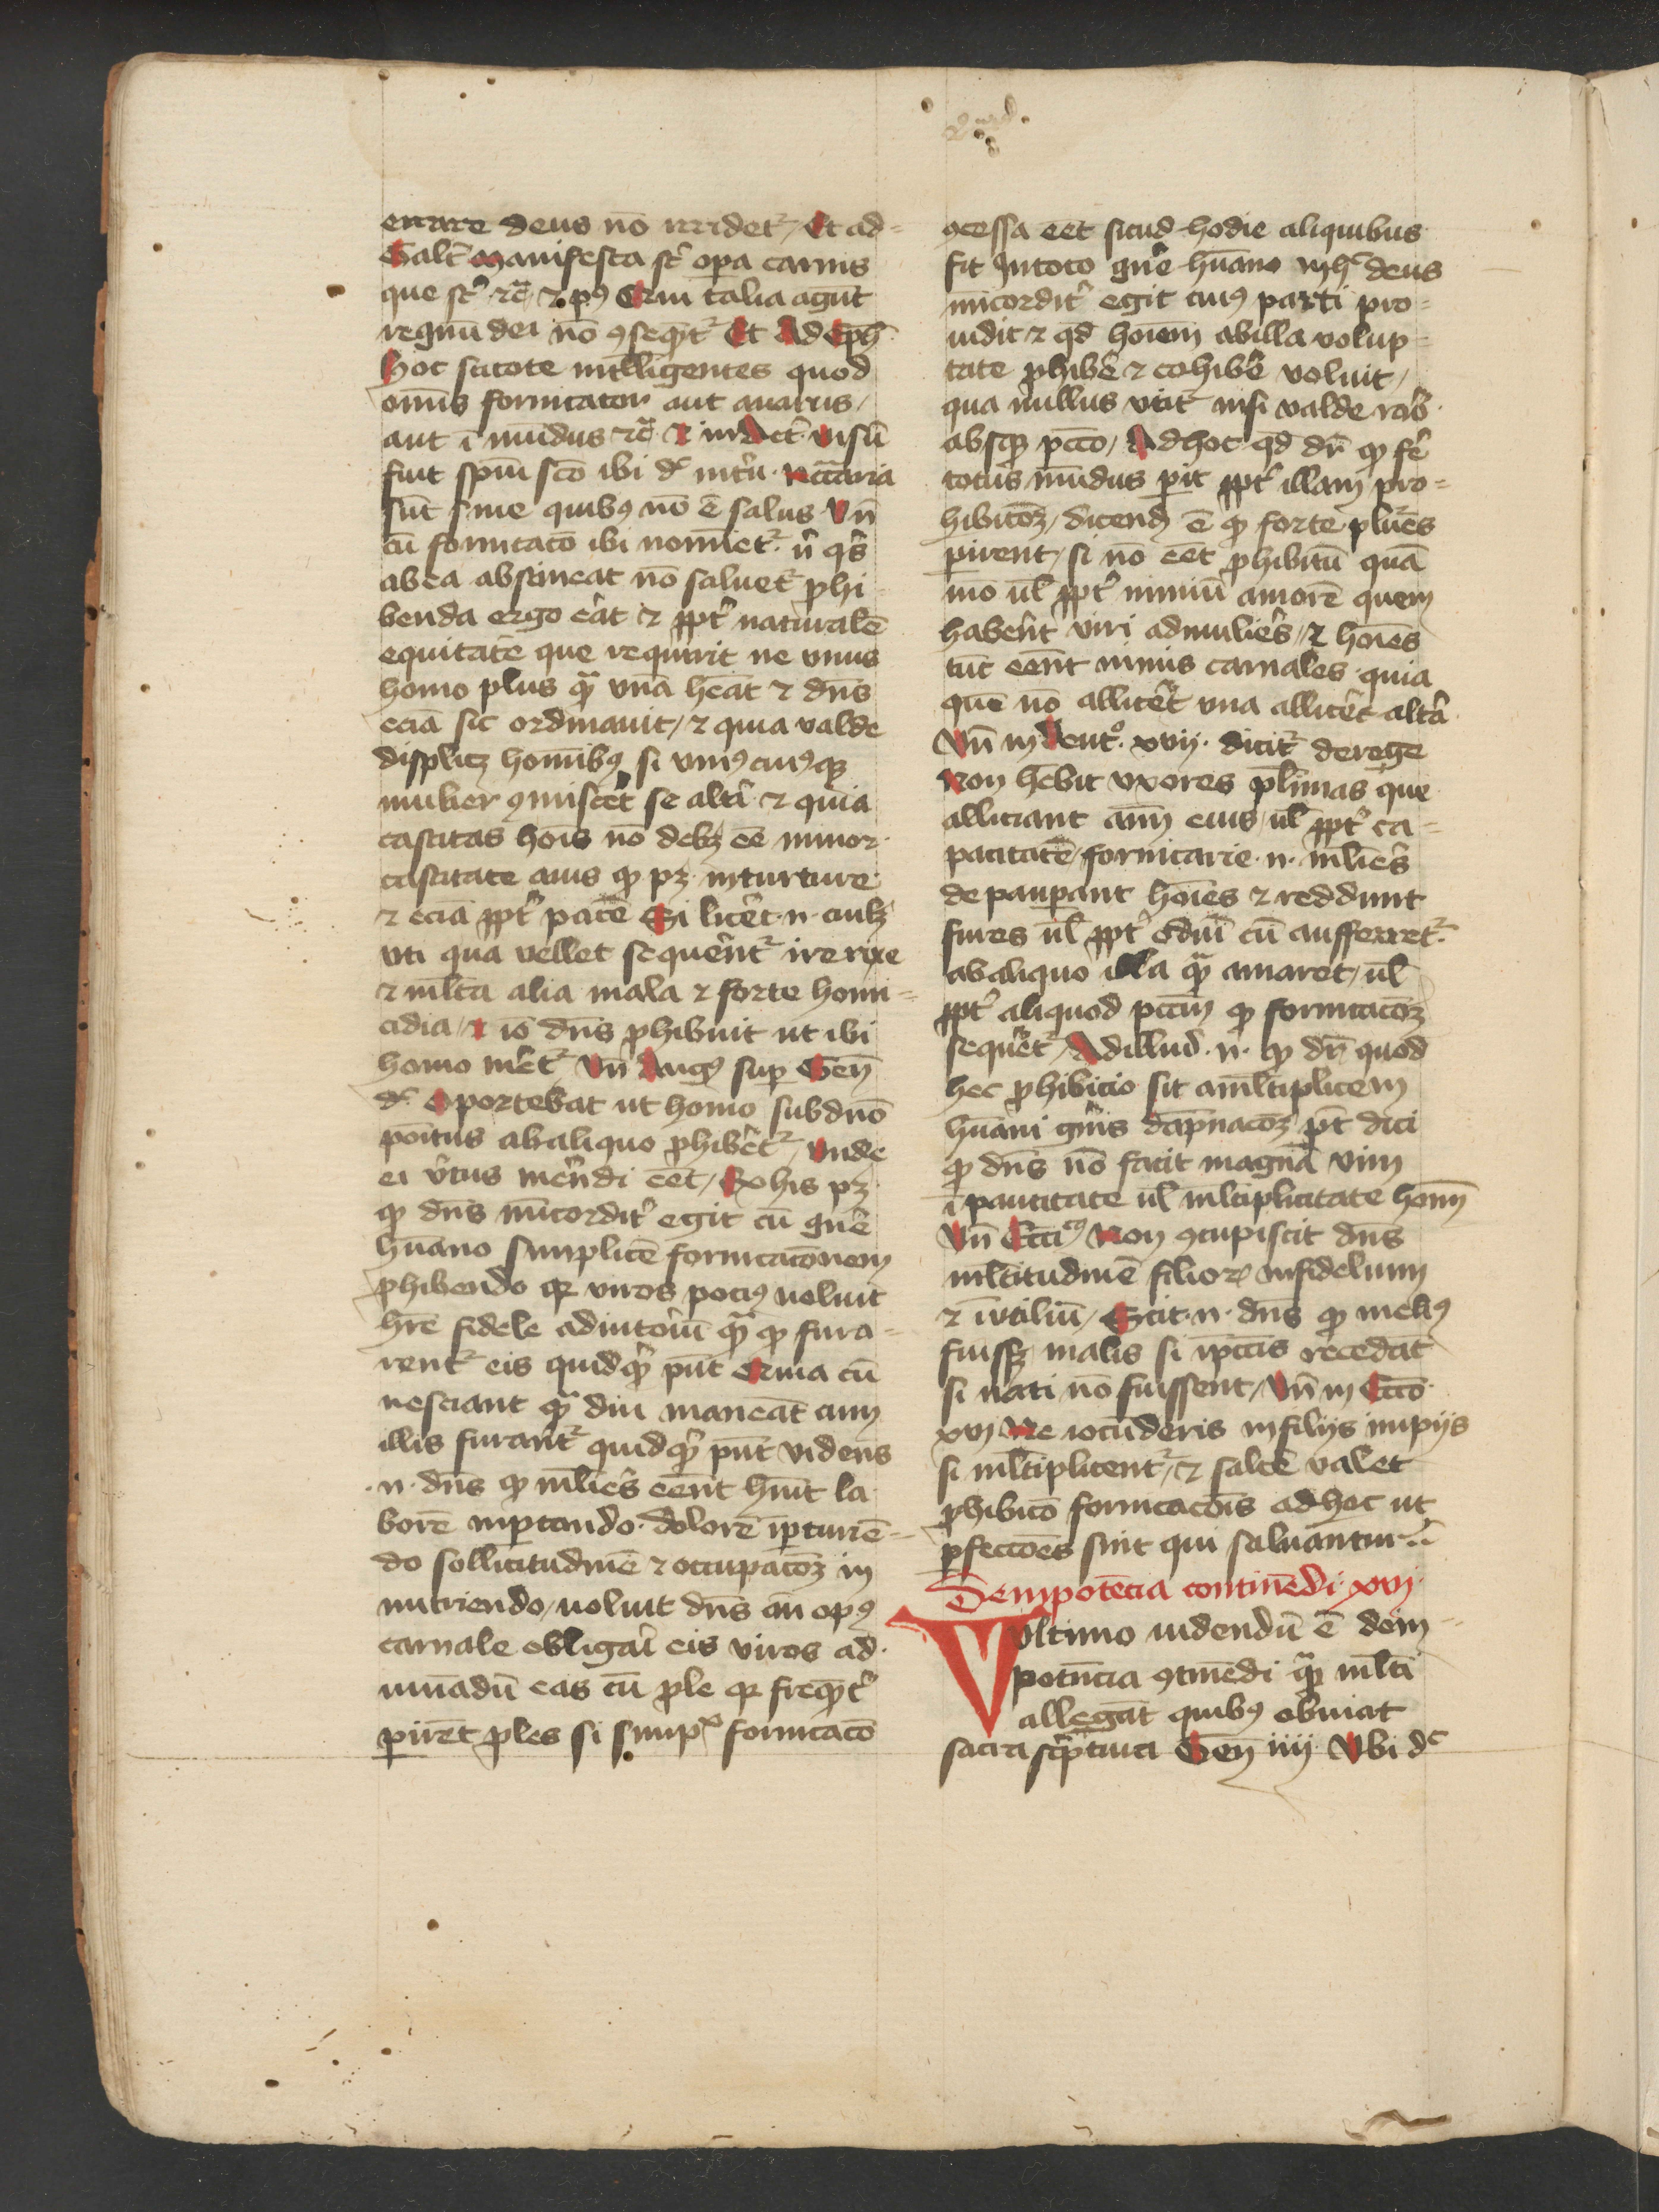 errare deus nō irridet᷑ / Et ad=
Galt̄ Manifesta st̄ opa carnis
que st̄ ⁊c̄ ⁊ pꝰ Qm̄ talia agūt
regnū dei nō ꝯseqūt᷑ Et Ad Eph̄
Hoc scitote intlligentes quod
omīs fornicator aut auarus /
aut ī mūdus ⁊c̄ Et in Act̄ Visū
fuit spm̄ sc̄o ibi dc̄ Nccāria
sūt sine quibꝰ nō ē salus Vn̄
cū fornicacō ibi nomīet᷑ n̄ qs̄
ab ea abstineat nō saluet᷑ ꝓhi
benda ergo erat ⁊ ꝓpt̄ naturalē
equitatē que requirit ne vnus
homo plus qͣ vnā hēat ⁊ dn̄s
eciā sic ordinauit / ⁊ quia valde
displicꝫ hominibꝰ si vniꝰ cuiꝰqꝫ
mulier ꝯmiscēt se altī ⁊ quia
castitas hoīs nō debꝫ eē minor
castitate auis ꝙ pꝫ in turture
⁊ eciā ꝓpt̄ pacē Si licēt n̄ cuilꝫ
vti qua vellet sequēnt᷑ ire rixe
⁊ mlta alia mala ⁊ forte homi=
cidia / ⁊ iō dn̄s ꝓhibuit ut ibi
homo mēt᷑ Vn̄ Augꝰ sup Gen̄
dc̄ Oportebat ut homo sub dn̄o
pōitus ab aliquo ꝓhibēt᷑ / Vnde
ei v̄tus mēn̄di eēt / Ex his pꝫ
ꝙ dn̄s mīcordit̄ egit cū gn̄e
hūano simplicē fornicacōnem
ꝓhibendo qꝛ viros pociꝰ uoluit
hr̄e fidele adiutoriū qͣ ꝙ fura=
rent᷑ eis quidqͥ pn̄t Qm̄ia cū
nesciant qͣ diu maneāt cum
illis furānt᷑ quidqͥ pn̄t videns
n̄ dn̄s ꝙ mlieˢ eēnt hn̄t la
borē inptando dolorē ī pturiē=
do sollicitudinē ⁊ occupacōꝫ in
nutriendo / uoluit dn̄s añ opꝰ
carnale obligaī eis viros ad
iuuādū eas cū ꝓle qꝛ freqͣt̄
pirēt ꝓles si simpˣ fornicacō
ꝯcessa eēt sicud hodie aliquibus
fit In toto gn̄e hūano in hͦ deus
mīcordit̄ egit cuiꝰ parti pro=
uidit ⁊ qd̄ hoīem ab illa volup=
tate ꝓhibē ⁊ cohibē voluit /
qua nullus vtit᷑ nisi valde raͦ
absqꝫ pcc̄o / Ad hoc qd̄ dr̄ ꝙ fē
totus mūdus pit ꝓpt̄ illam pro=
hibicōꝫ / dicend̄ ē ꝙ forte plures
pirent / si nō eēt ꝓhibitū quā
mō ul̄ ꝓpt̄ nimiū amorē quem
habēnt viri ad mulieˢ / ⁊ hoīes
tūc eēnt nimis carnales quia
quē nō allicēt vna allicēt alta
Vn̄ in Deutͦ xvij dicit᷑ de rege
Non hēbit vxores plīmas que
alliciant aīm eius / ul̄ ꝓpt̄ ca=
pacitatē fornicarie n̄ mlieˢ
depaupant hoīes ⁊ reddunt
fures ul̄ ꝓpt̄ odiū cū aufferret᷑
ab aliquo illa qͣ amaret / ul̄
ꝓpt̄ aliquod pcc̄m ꝙ fornicacōꝫ
sequēt᷑ / Ad illud n̄ ꝙ dr̄ quod
hec ꝓhibicio sit a mltiplicem
hūani gn̄is dāpnacōꝫ pt̄ dici
ꝙ dn̄s nō facit magnā vim
ī paucitate ul̄ mltiplicitate homī
Vn̄ Ecciͨꝰ Non ꝯcupiscit dn̄s
mltitudinē filioꝝ infidelium
⁊ īvtiliū / Scit n̄ dn̄s ꝙ meliꝰ
fuissꝫ malis si ī pccīs recedāt
si nati nō fuissent / Vn̄ in Eccͦ
xvj Ne iocūderis in filijs impijs
si mltiplicent᷑ / ⁊ saltē valet
ꝓhibicō fornicacōis ad hoc ut
pfecciōes sint qui saluantur
De inpotēcia continēdi xvj
Vltimo uidendū ē de im=
potn̄cia ꝯtinēdi qͣ mlti
allegāt quibꝰ obuiat
sacra scͥptura Gen̄ iiij Vbi dc̄